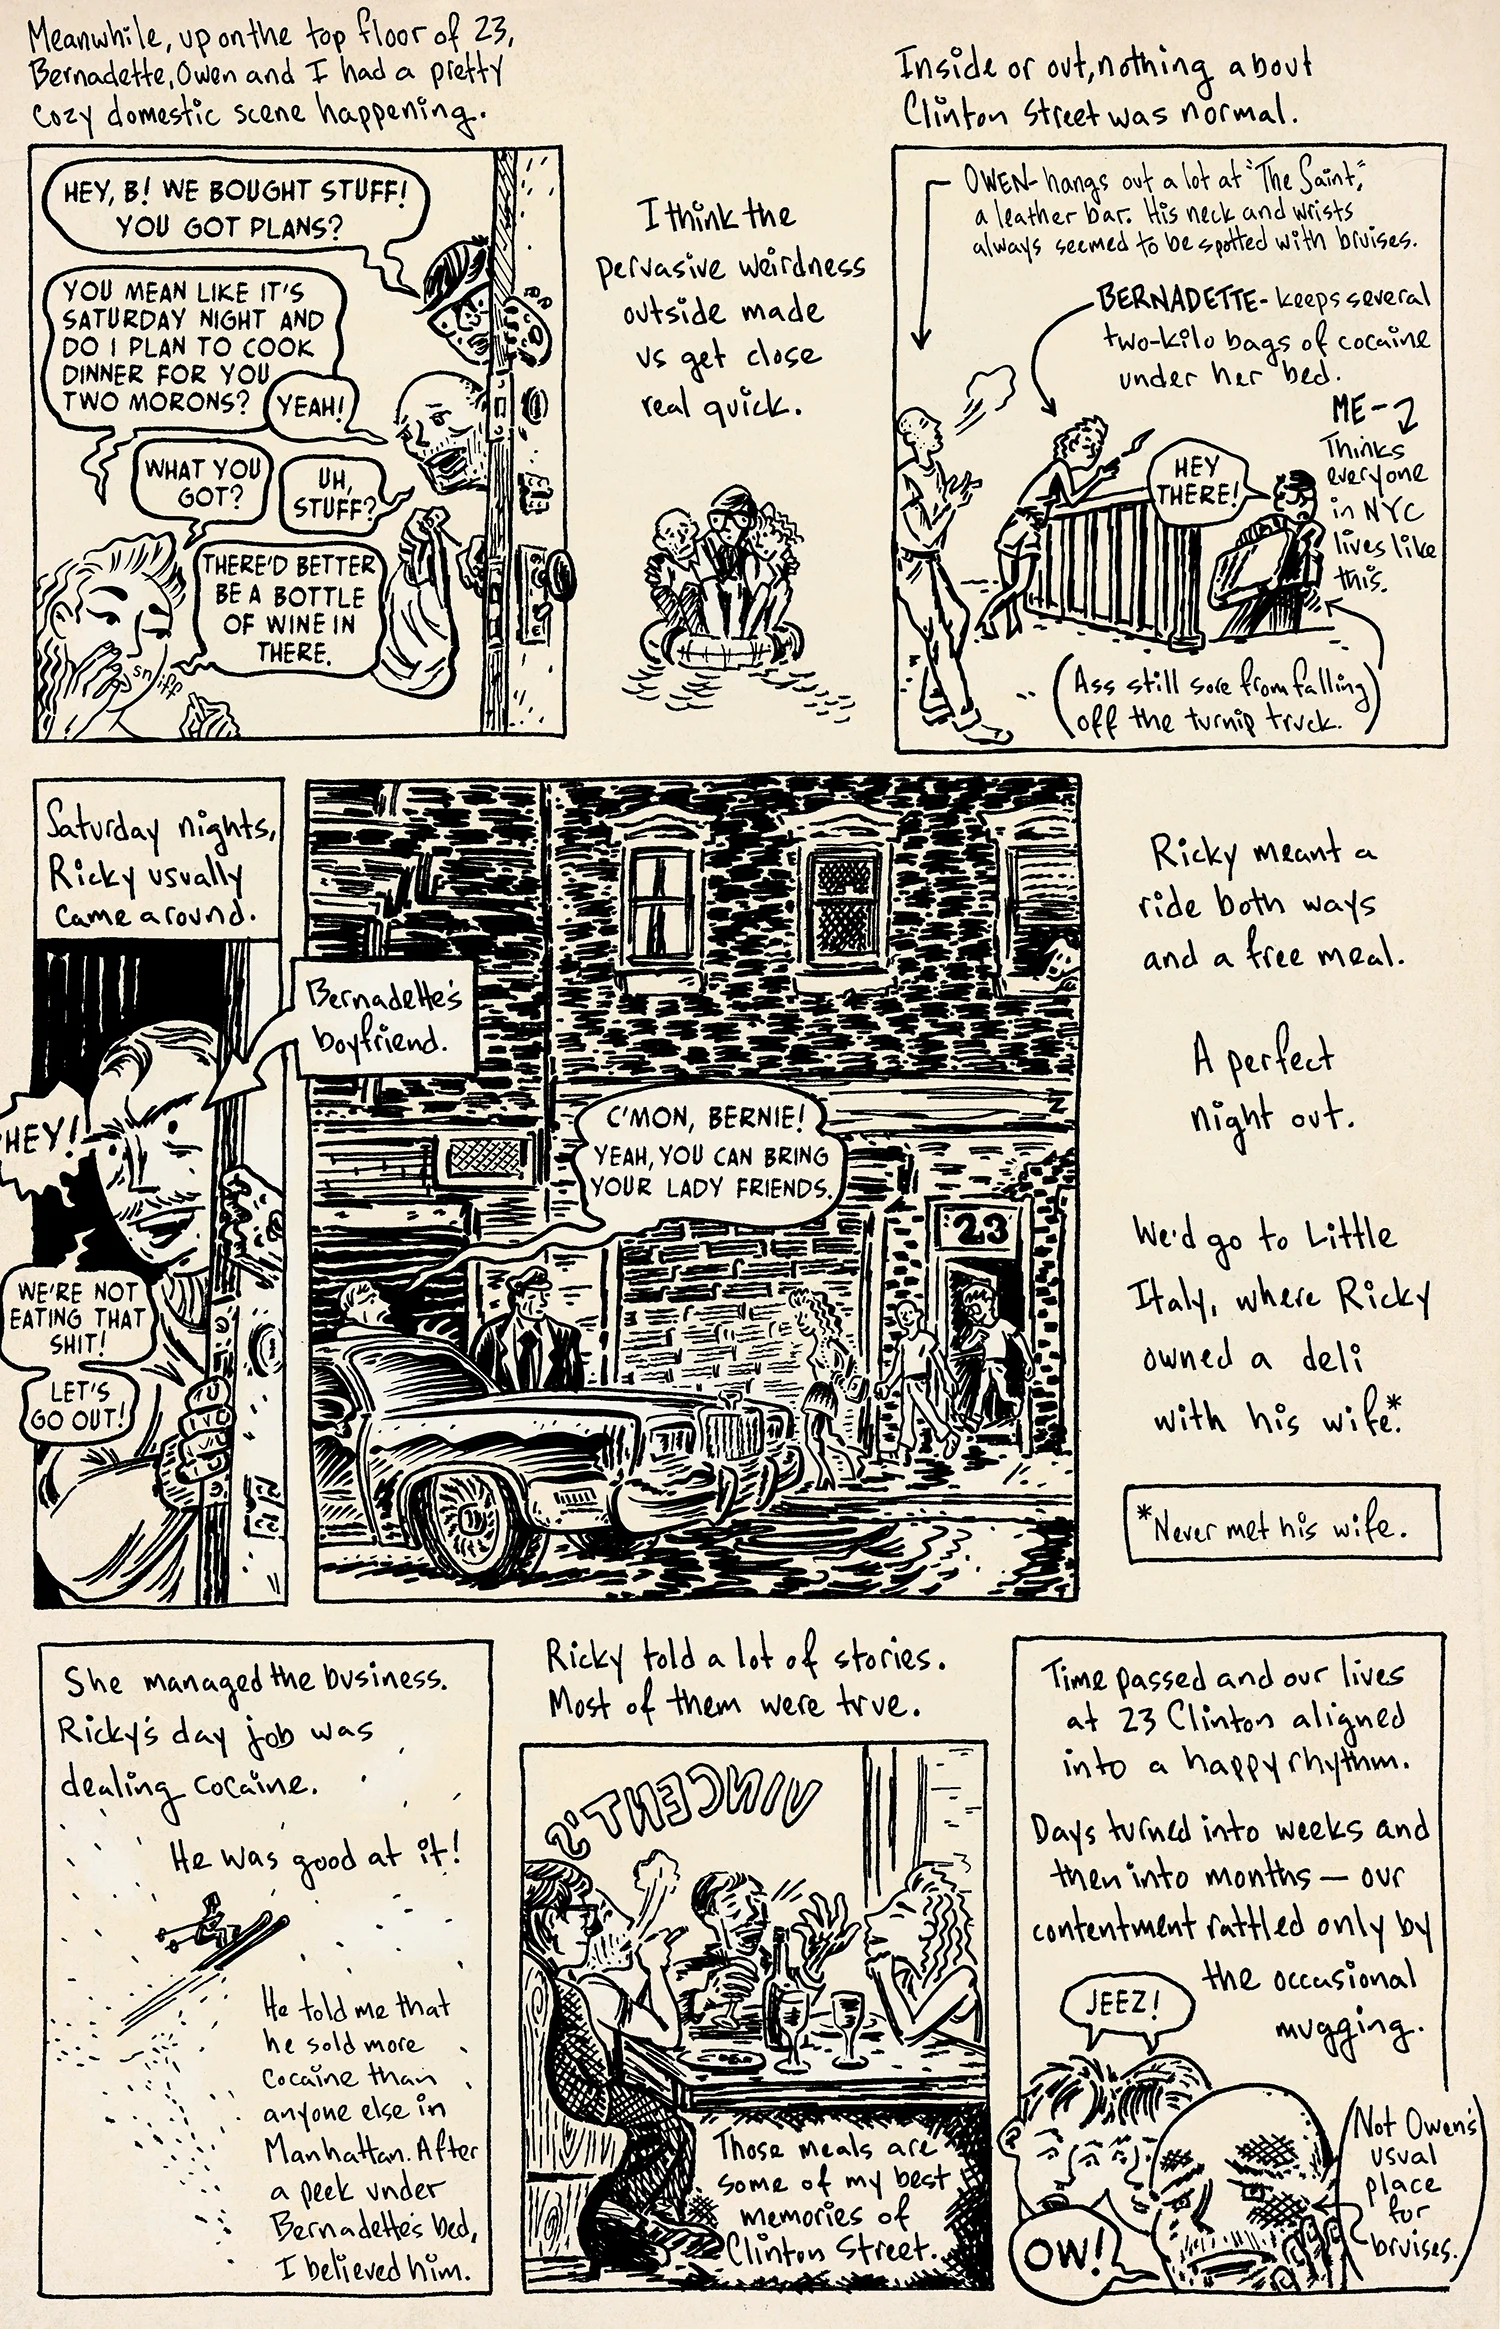 Meanwhile, up on the top floor of 23,
Bernadette, Owen and I had a pretty
cozy domestic scene happening.
HEY, B! WE BOUGHT STUFF!
YOU GOT PLANS?
YOU MEAN LIKE IT'S
SATURDAY NIGHT AND
DO I PLAN TO COOK
DINNER FOR YOU
TWO MORONS?
YEAH!
WHAT YOU
GOT?
UH,
STUFF?
THERE'D BETTER
BE A BOTTLE
OF WINE IN
THERE.
sniff
I think the
pervasive weirdness
outside made
us get close
real quick.
Inside or out, nothing about
Clinton Street was normal.
OWEN- hangs out a lot at "The Saint,"
a leather bar. His neck and wrists
always seemed to be spotted with bruises.
BERNADETTE- keeps several
two-kilo bags of cocaine
under her bed.
ME-
Thinks
everyone
in NYC
lives like
this.
HEY
THERE!
(Ass still sore from falling
off the turnip truck.)
Saturday nights,
Ricky usually
came around.
Bernadette's
boyfriend.
HEY!
WE'RE NOT
EATING THAT
SHIT!
LET'S
GO OUT!
C'MON, BERNIE!
YEAH, YOU CAN BRING
YOUR LADY FRIENDS.
23
Ricky meant a
ride both ways
and a free meal.
A perfect
night out.
We'd go to Little
Italy, where Ricky
owned a deli
with his wife.*
*Never met his wife.
She managed the business.
Ricky's day job was
dealing cocaine.
He was good at it!
He told me that
he sold more
cocaine than
anyone else in
Manhattan. After
a peek under
Bernadette's bed,
I believed him.
Ricky told a lot of stories.
Most of them were true.
VINCENT'S
Those meals are
some of my best
memories of
Clinton Street.
Time passed and our lives
at 23 Clinton aligned
into a happy rhythm.
Days turned into weeks and
then into months — our
contentment rattled only by
the occasional
mugging.
JEEZ!
OW!
(Not Owen's
usual
place
for
bruises.)